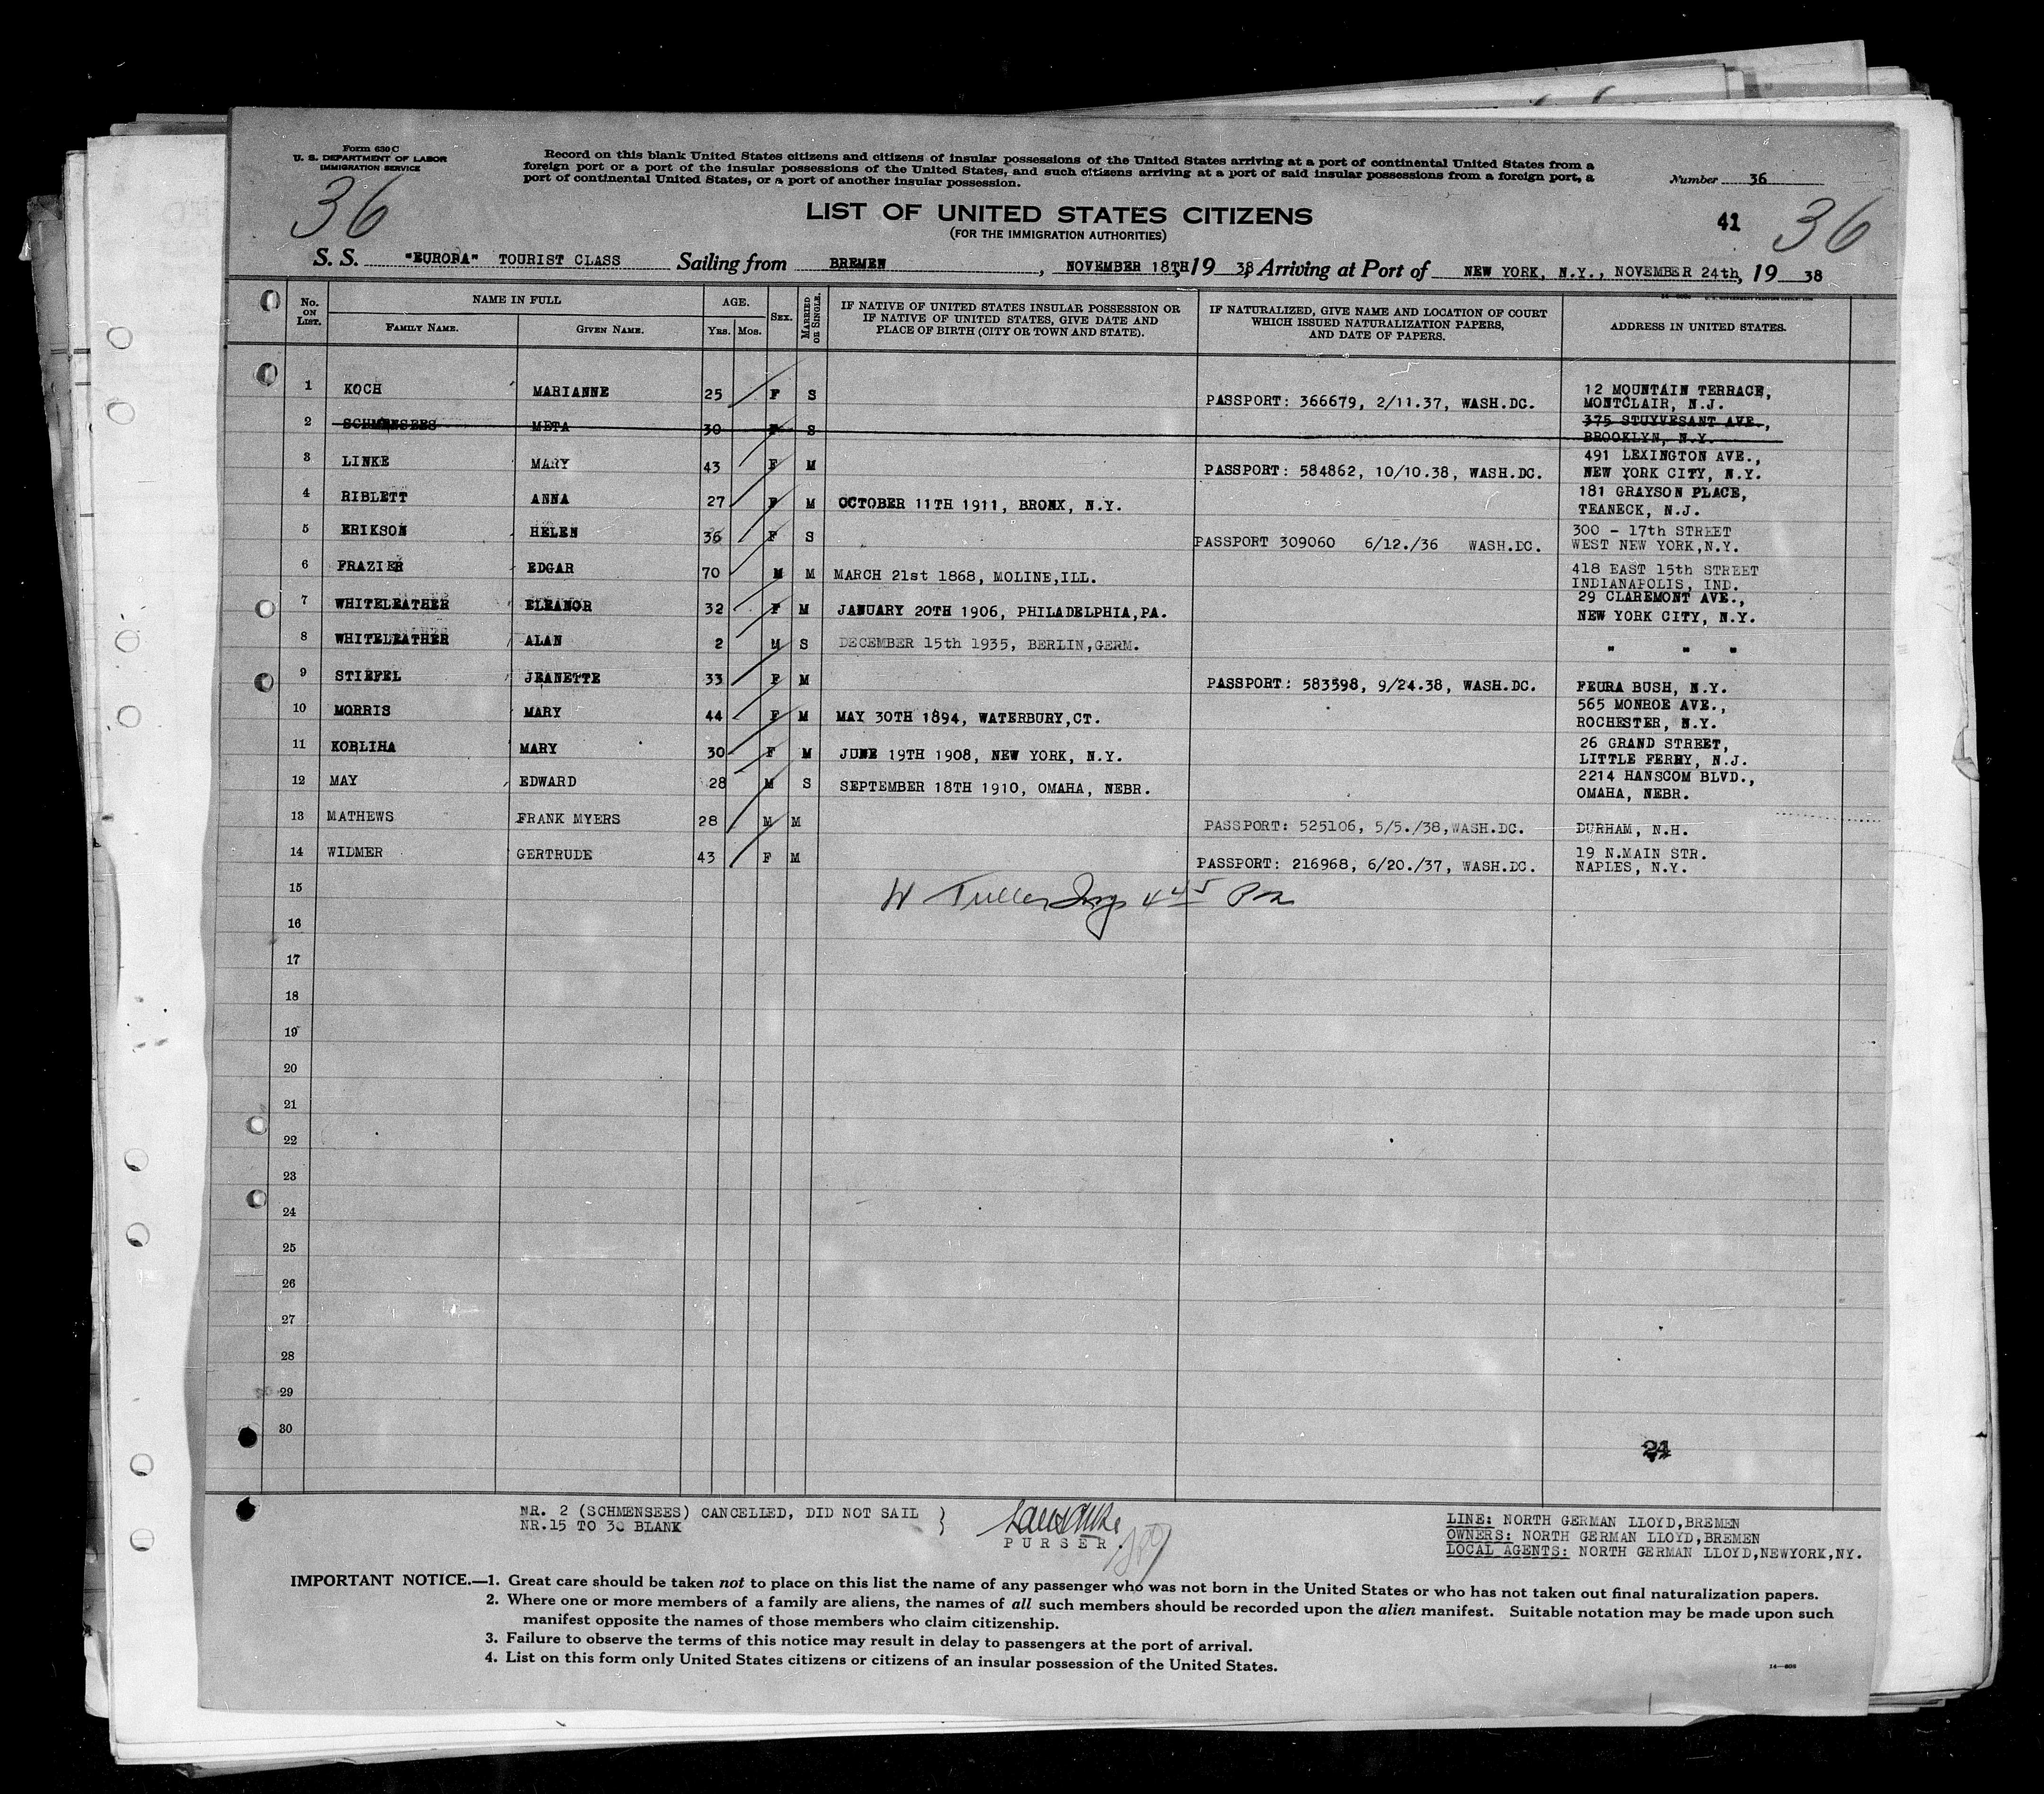 Form 630 C
U. S. DEPARTMENT OF LABOR
IMMIGRATION SERVICE
Record on this blank United States citizens and citizens of insular possessions of the United States arriving at a port of continental United States from a
foreign port or a port of the insular possessions of the United States, and such citizens arriving at a port of said insular possessions from a foreign port, a
port of continental United States, or a port of another insular possession.
Number 36
36
LIST OF UNITED STATES CITIZENS
41 36
(FOR THE IMMIGRATION AUTHORITIES)
S. S. "EUROPA" TOURIST CLASS Sailing from BREMEN, NOVEMBER 18TH 19 38 Arriving at Port of NEW YORK, N.Y., NOVEMBER 24th, 19 38
No. ON LIST. NAME IN FULL FAMILY NAME. GIVEN NAME. AGE. YRS. MOS. SEX. MARRIED OR SINGLE. IF NATIVE OF UNITED STATES INSULAR POSSESSION OR IF NATIVE OF UNITED STATES, GIVE DATE AND PLACE OF BIRTH (CITY OR TOWN AND STATE). IF NATURALIZED, GIVE NAME AND LOCATION OF COURT WHICH ISSUED NATURALIZATION PAPERS, AND DATE OF PAPERS. ADDRESS IN UNITED STATES.
1 KOCH MARIANNE 25 F S PASSPORT: 366679, 2/11.37, WASH.DC. 12 MOUNTAIN TERRACE, MONTCLAIR, N.J.
2 SCHMENSEES META 30 F S 375 STUYVESANT AVE., BROOKLYN, N.Y.
3 LINKE MARY 43 F M PASSPORT: 584862, 10/10.38, WASH.DC. 491 LEXINGTON AVE., NEW YORK CITY, N.Y.
4 RIBLETT ANNA 27 F M OCTOBER 11TH 1911, BRONX, N.Y. 181 GRAYSON PLACE, TEANECK, N.J.
5 ERIKSON HELEN 36 F S PASSPORT 309060 6/12./36 WASH.DC. 300 - 17th STREET WEST NEW YORK,N.Y.
6 FRAZIER EDGAR 70 M M MARCH 21st 1868, MOLINE,ILL. 418 EAST 15th STREET INDIANAPOLIS, IND.
7 WHITELEATHER ELEANOR 32 F M JANUARY 20TH 1906, PHILADELPHIA,PA. 29 CLAREMONT AVE., NEW YORK CITY, N.Y.
8 WHITELEATHER ALAN 2 M S DECEMBER 15th 1935, BERLIN,GERM. " " "
9 STIEFEL JEANETTE 33 F M PASSPORT: 583598, 9/24.38, WASH.DC. FEURA BUSH, N.Y.
10 MORRIS MARY 44 F M MAY 30TH 1894, WATERBURY,CT. 565 MONROE AVE., ROCHESTER, N.Y.
11 KOBLIHA MARY 30 F M JUNE 19TH 1908, NEW YORK, N.Y. 26 GRAND STREET, LITTLE FERRY, N.J.
12 MAY EDWARD 28 M S SEPTEMBER 18TH 1910, OMAHA, NEBR. 2214 HANSCOM BLVD., OMAHA, NEBR.
13 MATHEWS FRANK MYERS 28 M M PASSPORT: 525106, 5/5./38,WASH.DC. DURHAM, N.H.
14 WIDMER GERTRUDE 43 F M PASSPORT: 216968, 6/20./37, WASH.DC. 19 N.MAIN STR. NAPLES, N.Y.
15
W Fuller Insp 4 45 Pm
16
17
18
19
20
21
22
23
24
25
26
27
28
29
30
NR. 2 (SCHMENSEES) CANCELLED, DID NOT SAIL }
NR.15 TO 30 BLANK
PURSER.
LINE: NORTH GERMAN LLOYD,BREMEN
OWNERS: NORTH GERMAN LLOYD,BREMEN
LOCAL AGENTS: NORTH GERMAN LLOYD,NEWYORK,NY.
IMPORTANT NOTICE.—1. Great care should be taken not to place on this list the name of any passenger who was not born in the United States or who has not taken out final naturalization papers.
2. Where one or more members of a family are aliens, the names of all such members should be recorded upon the alien manifest. Suitable notation may be made upon such
manifest opposite the names of those members who claim citizenship.
3. Failure to observe the terms of this notice may result in delay to passengers at the port of arrival.
4. List on this form only United States citizens or citizens of an insular possession of the United States.